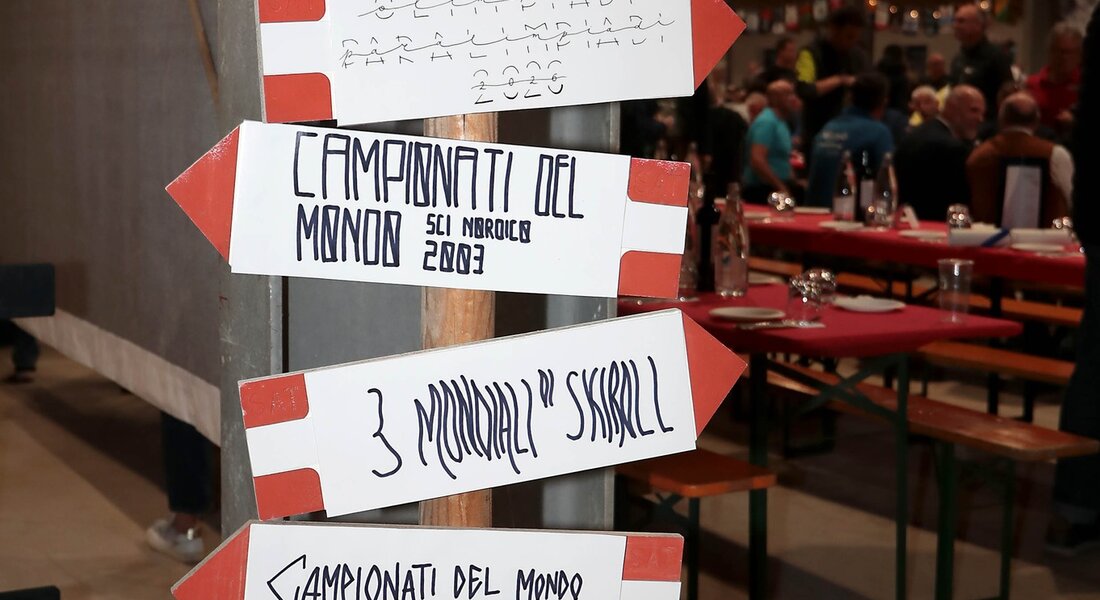 OLIMPIADI
PARALIMPIADI
2026
CAMPIONATI DEL
MONDO SCI NORDICO
2003
SAT
3 MONDIALI DI SKIROLL
SAT
CAMPIONATI DEL MONDO
SAT